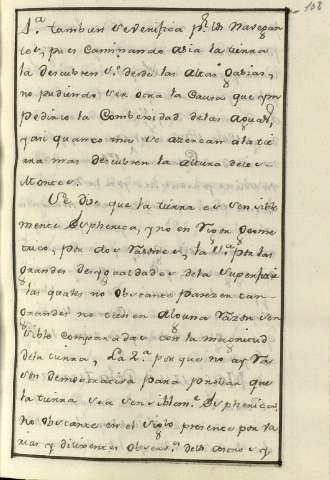 108
1.ª tambien se verifica p.r los Navegan
tes, pues caminando asia la tierra
la descubren 1.º desde las altas Gabias,
no pudiendo ser otra la causa que ym
pedirlo la Combexidad de las aguas,
y asi quanto mas se azercan â la tie
rra mas descubren la altura de los
Montes.
Se dize que la tierra es sensible
mente Espherica, y no en rigor Geome
trico, por dos razones, la 1.ª por las
grandes desygualdades de la superficie
las quales no obstante parezen tan
grandes no tienen alguna razon sen
sible comparadas con la magnitud
de la tierra, La 2.ª por que no ay ra
zon demostrativa para probar que
la tierra sea sensiblem.e Espherica,
no obstante en el siglo presente por va
rias y diligentes observ.s de los